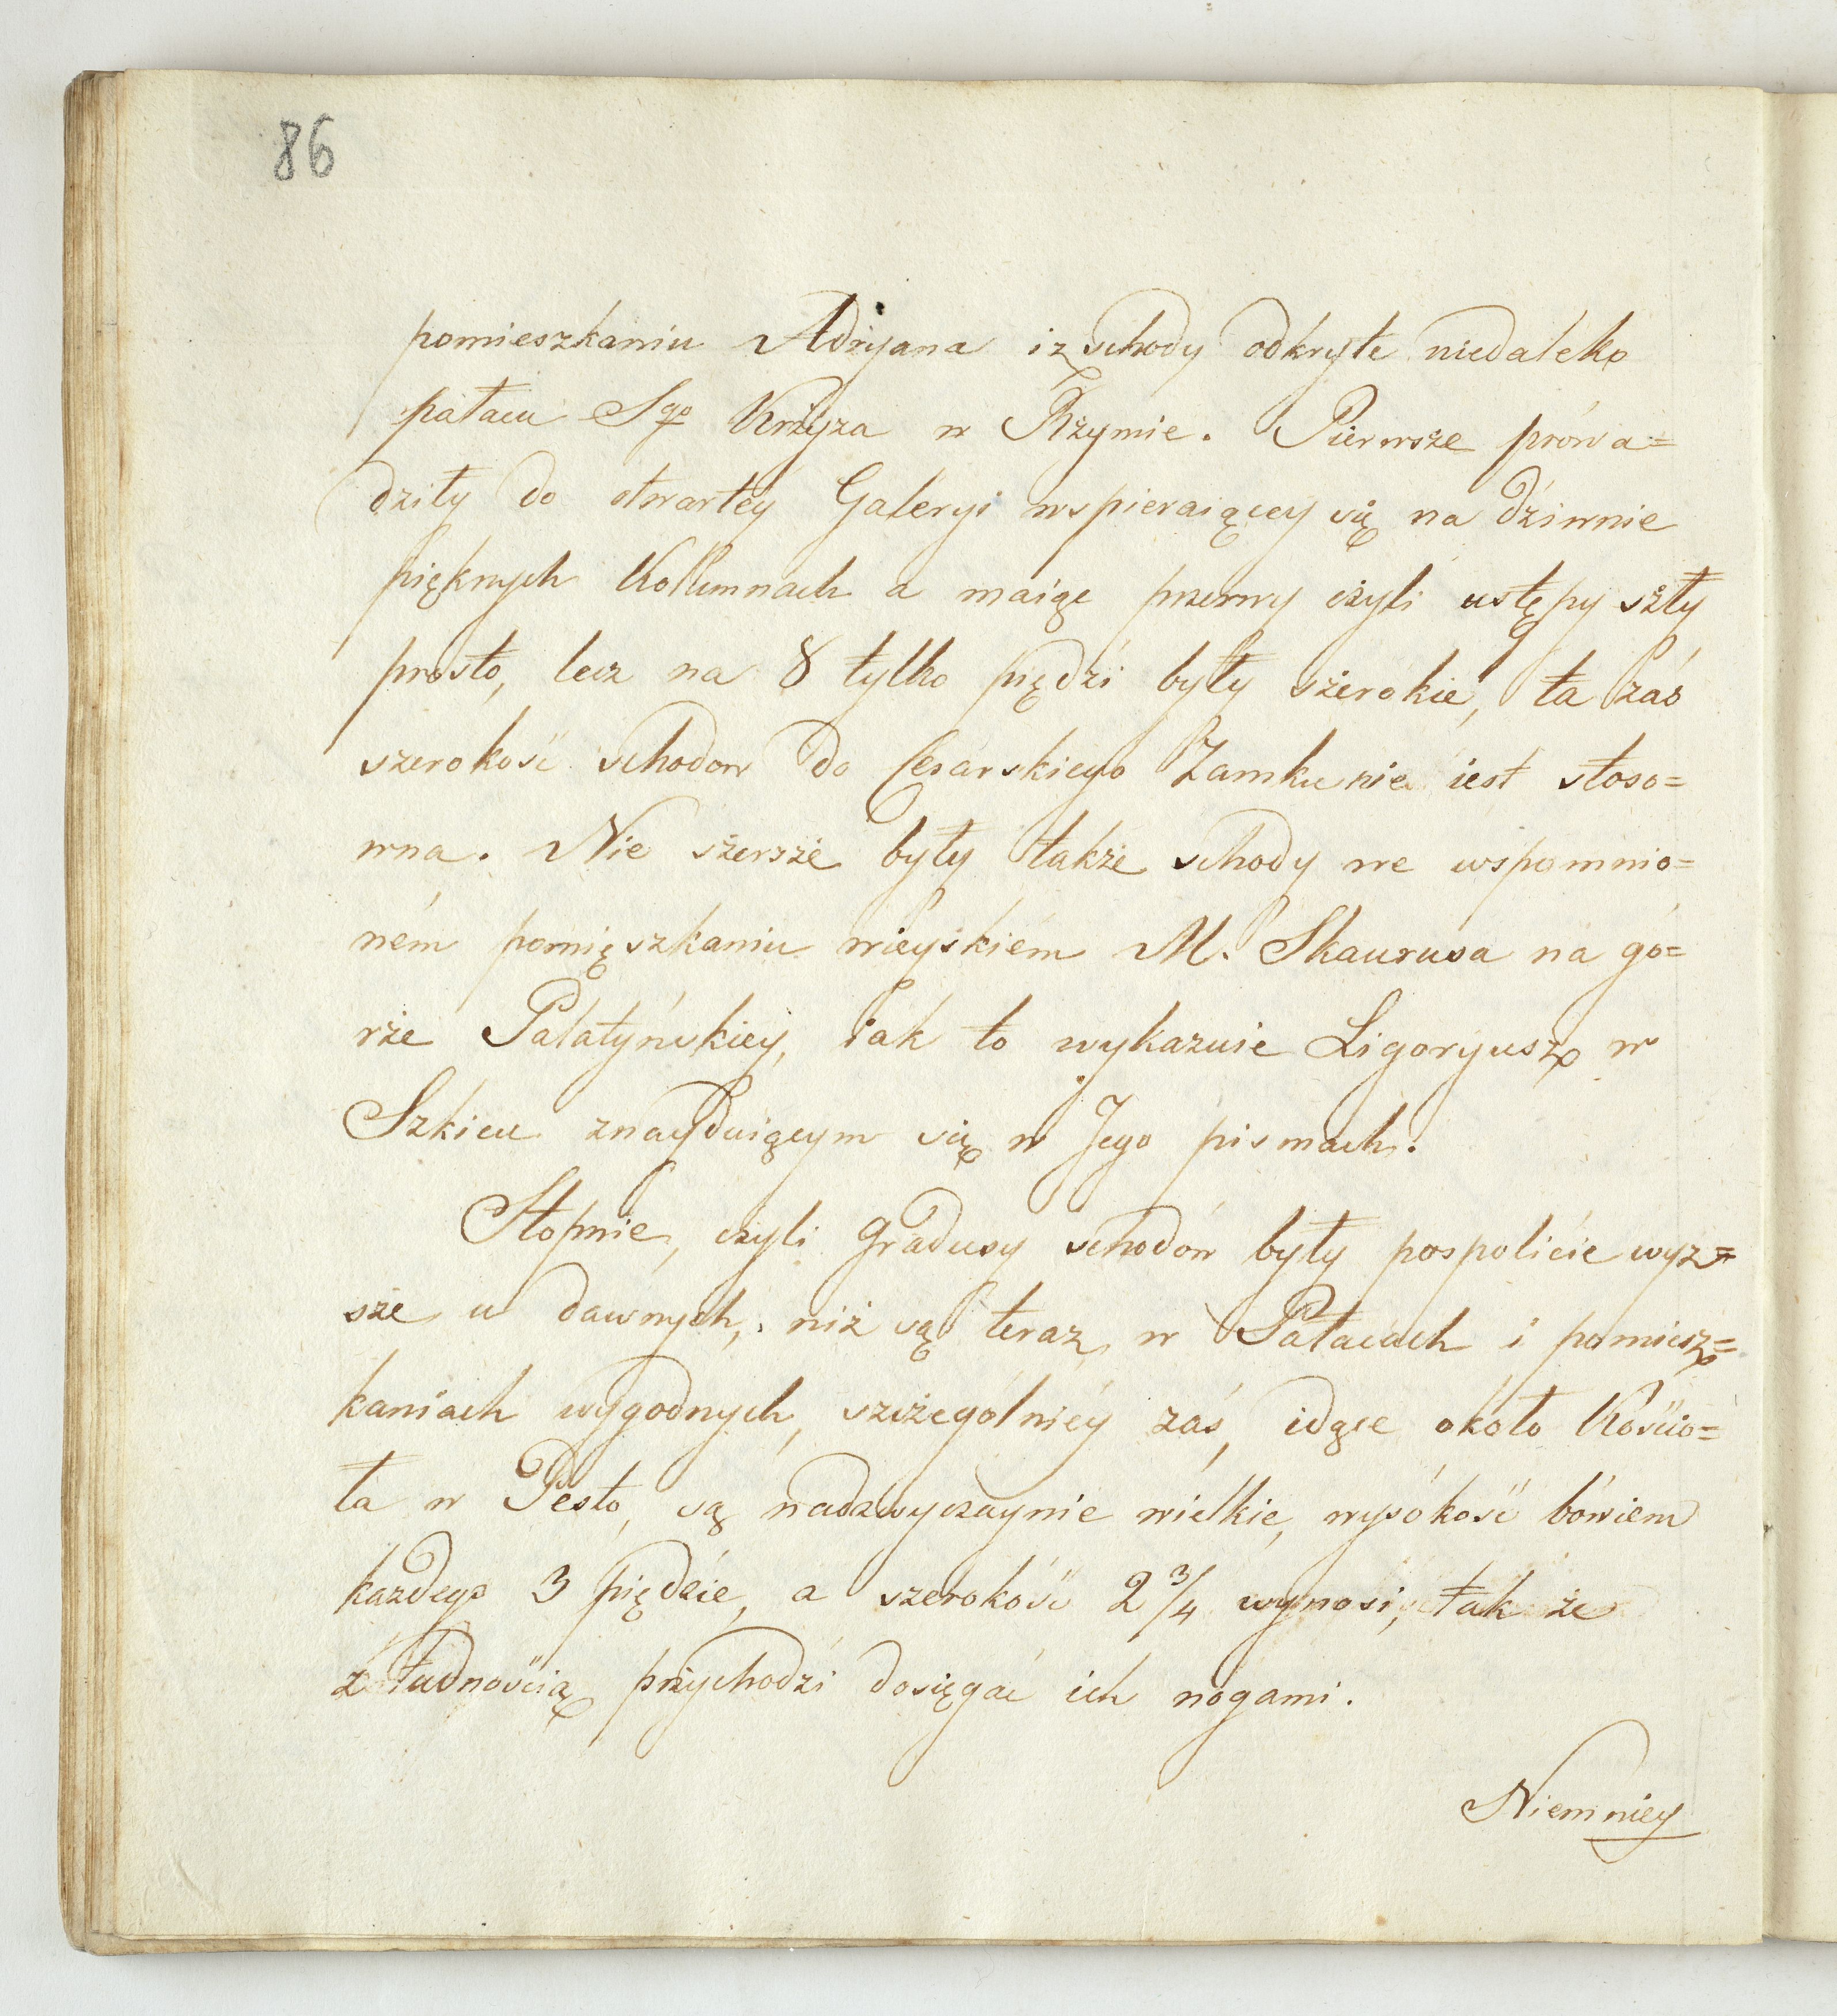 86
pomieszkaniu Adryana iz schody odkryte niedaleko
pałacu Sgo Krzyża w Rzymie. Pierwsze prowa=
dziły do otwartéy Galeryi wspieraiącey się na dźiwnie
pięknych Kollumnach a maiąc przerwy czyli ustępy szły
prosto, lecz na 8 tylko piędźi były szerokie, ta zaś
szerokość schodow do Cesarskiego Zamku nie iest stoso=
wna. Nie szersze były także schody we wspomnio=
ném pomięszkaniu wieyskiém M. Skaurusa na gó=
rze Palatyńskiey, iak to wykazuie Ligoryusz w
Szkicu znayduiącym się w Jego pismach.
Stopnie, czyli gradusy schodów były pospolicie wyz=
sze u dawnych, niż są teraz w Pałacach i pomiesz=
kaniach wygodnych, szczególniéy zaś, idące około Kościo=
ła w Pesto, są nadzwyczaynie wielkie, wysokość bowiem
każdego 3 piędźie, a szerokość 2 3/4 wynosi, tak że
z tudnością przychodzi dosięgać ich nogami.
Niemniey